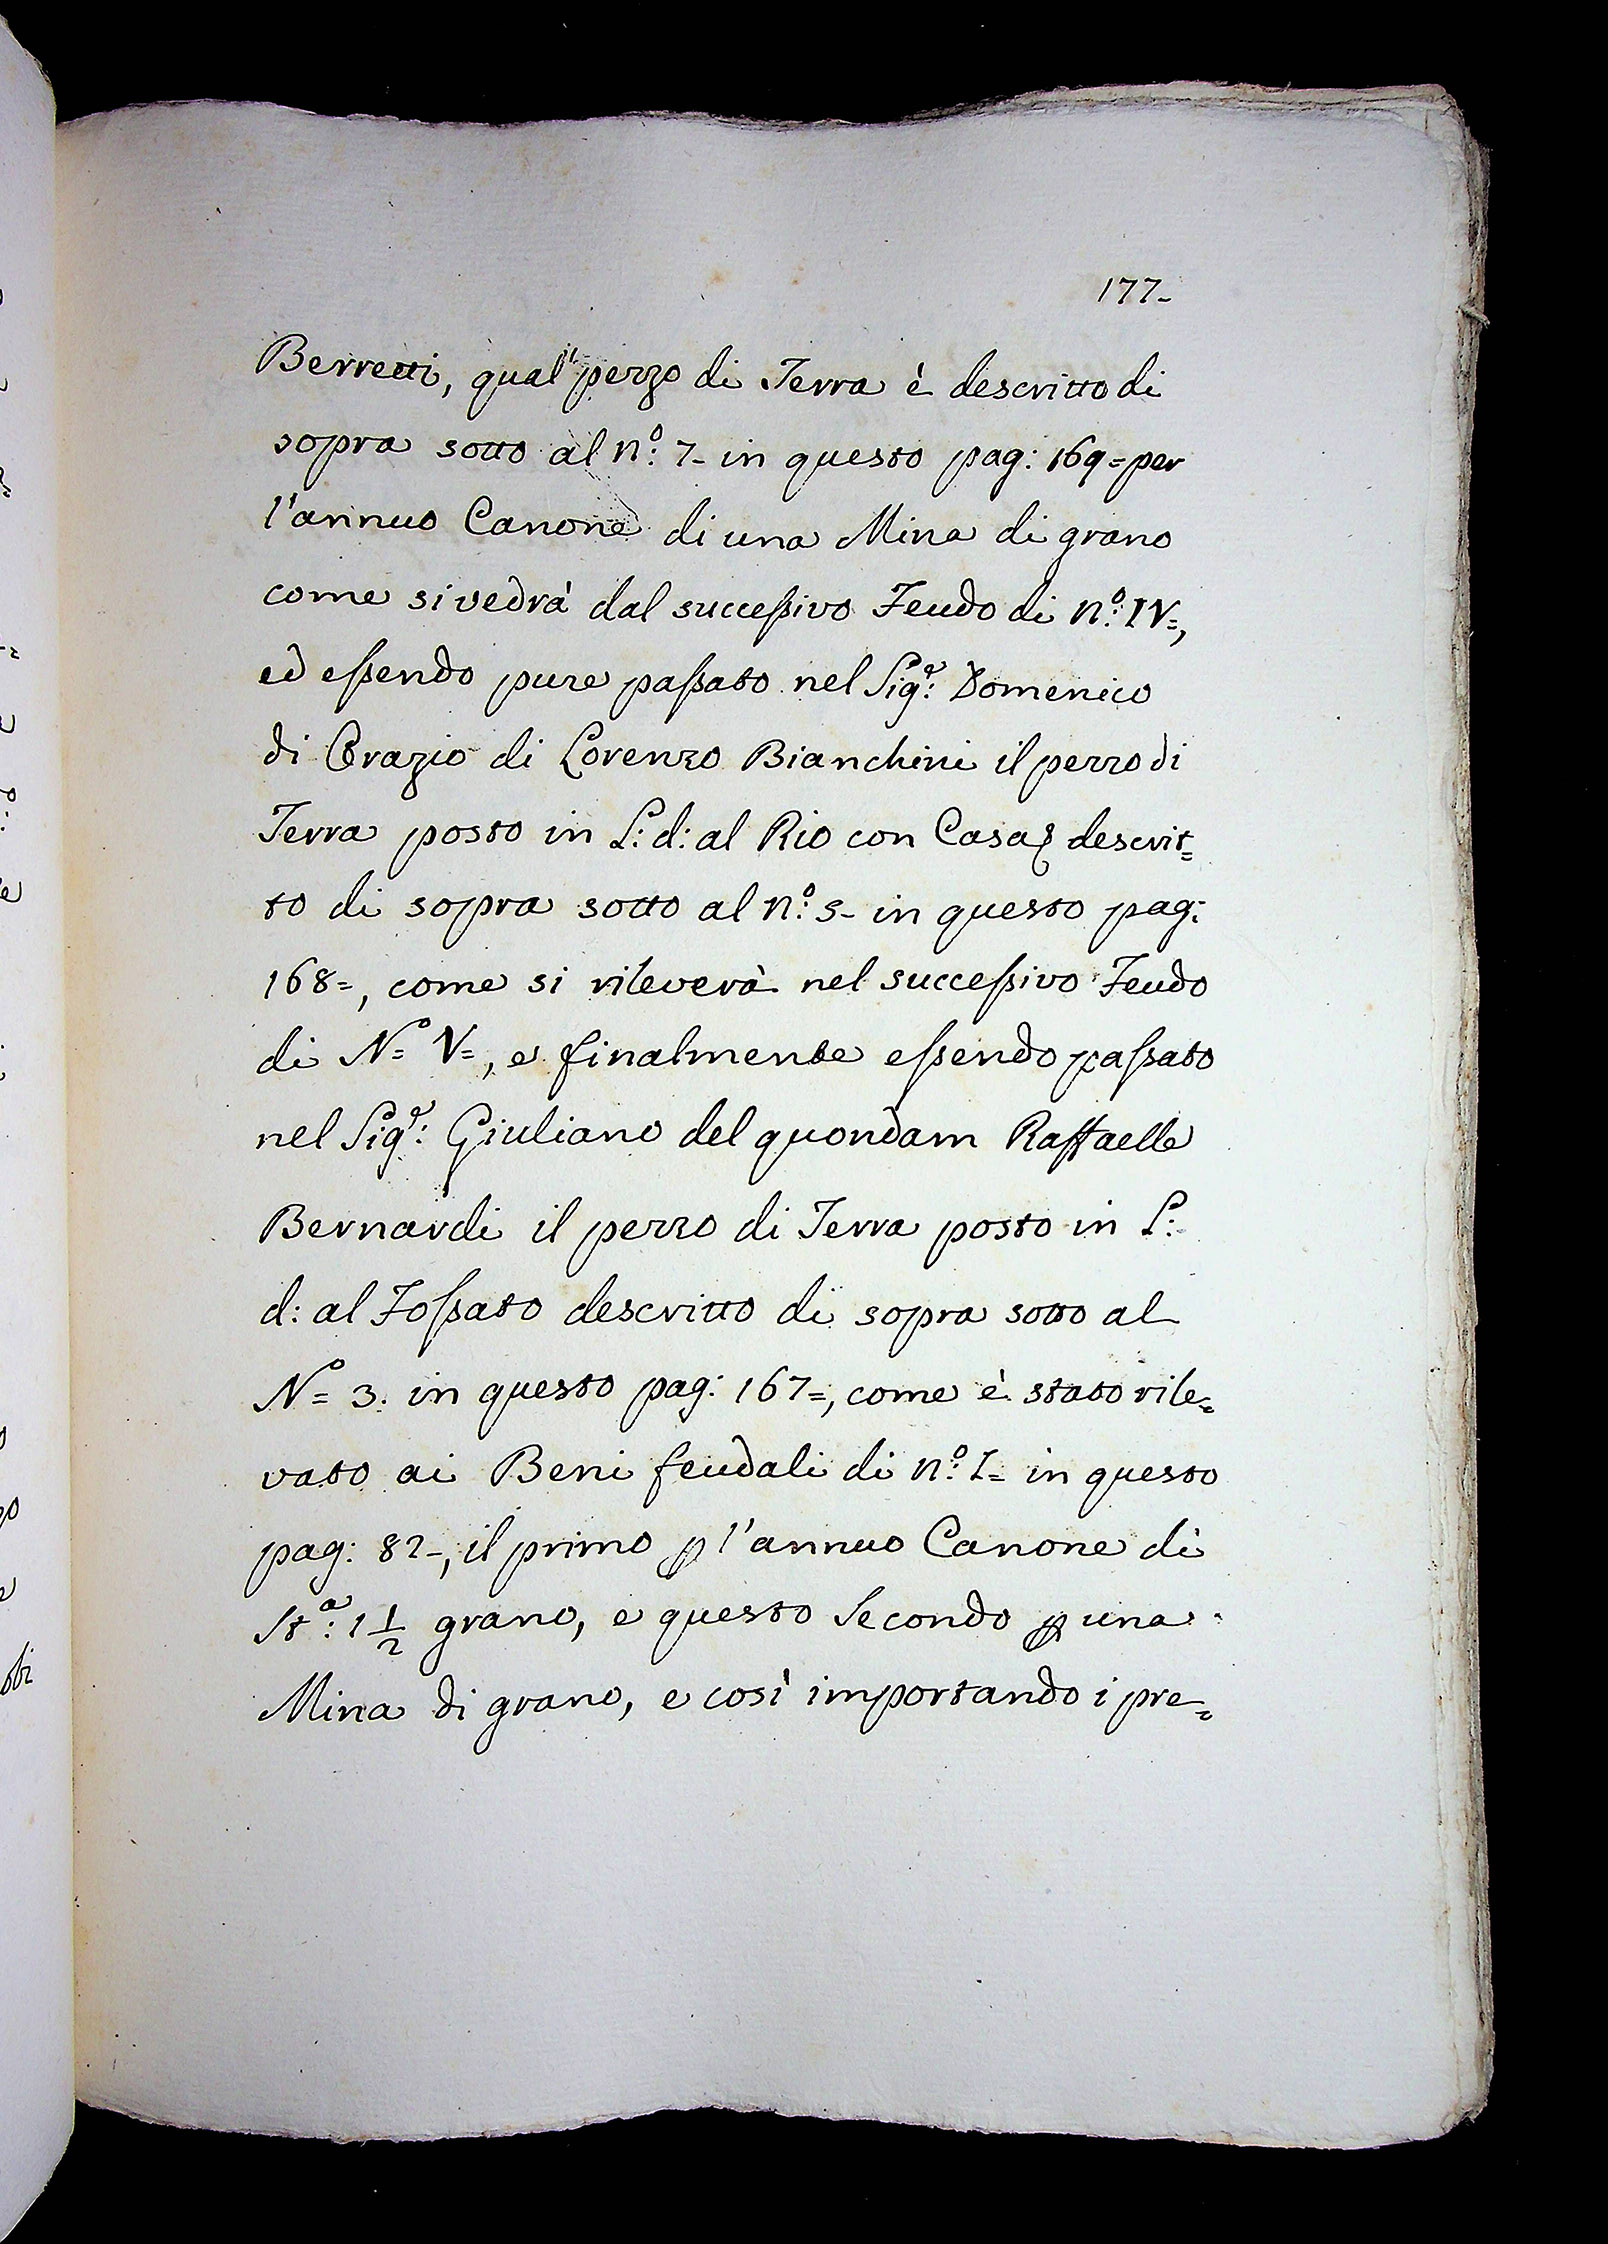 177-
Berretti, qual' pezzo di Terra è descritto di
sopra sotto al n.º 7- in questo pag: 169= per
l'annuo Canone di una Mina di grano
come si vedrà dal successivo Feudo di n.º IV=,
ed essendo pure passato nel Sig.r: Domenico
di Orazio di Lorenzo Bianchini il pezzo di
Terra posto in L: d: al Rio con Casa descrit=
to di sopra sotto al n.º 5- in questo pag:
168=, come si rileverà nel successivo Feudo
di Nº= V=, e finalmente essendo passato
nel Sig.r: Giuliano del quondam Raffaelle
Bernardi il pezzo di Terra posto in L:
d: al Fossato descritto di sopra sotto al
Nº= 3. in questo pag: 167=, come è stato rile=
vato ai Beni feudali di n.º I= in questo
pag: 82-, il primo p l'annuo Canone di
St.a: 1 1/2 grano, e questo Secondo p una
Mina di grano, e così importando i pre=